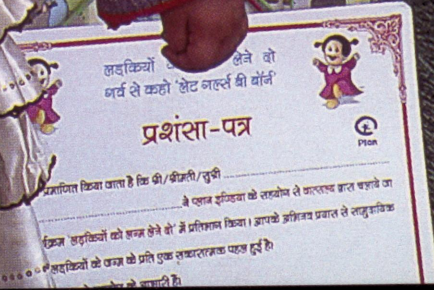 लड़कियों लेने दो
गर्व से कहो 'लेट गर्ल्स बी बॉर्न'
प्रशंसा-पत्र
Plan
प्रमाणित किया जाता है कि श्री/श्रीमती/सुश्री
ने प्लान इण्डिया के सहयोग से वात्सल्य द्वारा चलाये जा
लड़कियों को जन्म लेने दो' में प्रतिभाग किया। आपके अभिनव प्रयास से सामुदायिक
लड़कियों के जन्म के प्रति एक सकारात्मक पहल हुई है।